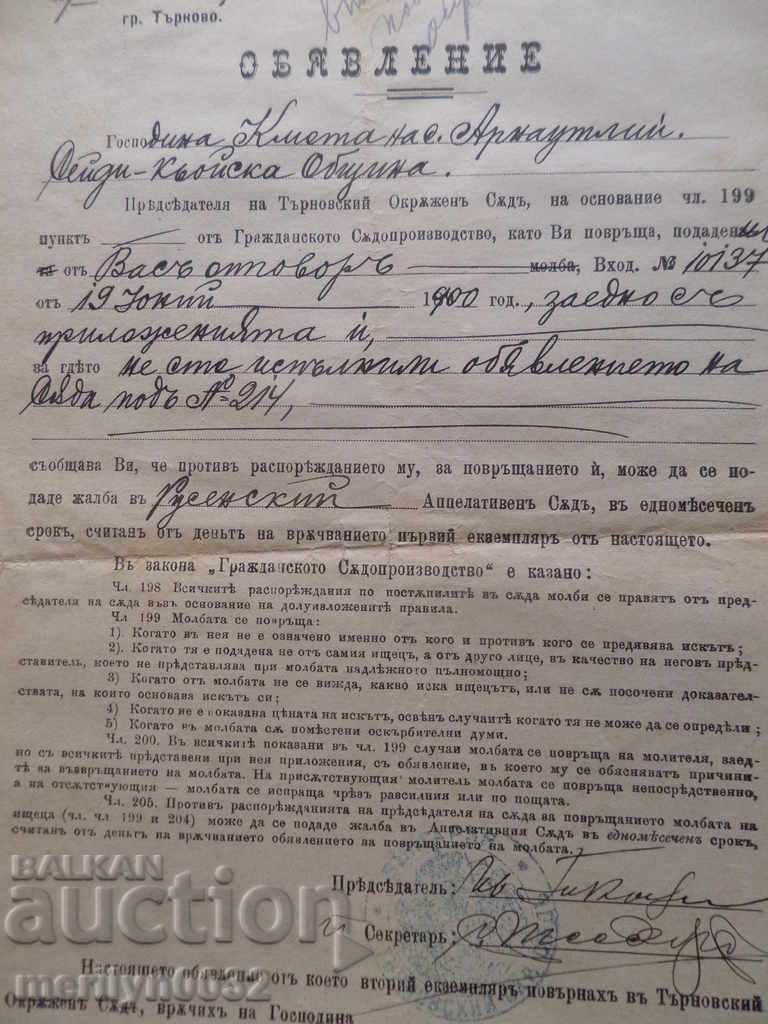 гр. Търново.
ОБЯВЛЕНИЕ
Господина Кмета на с. Арнаутлий.
Сейди-Кьойска Община.
Прѣдсѣдателя на Търновский Окрѫженъ Сѫдъ, на основание чл. 199
пунктъ отъ Гражданското Сѫдопроизводство, като Ви повръща, подадений
та отъ Васъ отговоръ молба, Вход. № 10137
отъ 19 Юний 1900 год., заедно съ
приложенията ѝ,
за гдѣто не сте испълнили обявлението на
Сѫда подъ № 214,
съобщава Ви, че противъ распорѣжданието му, за повръщанието ѝ, може да се по-
даде жалба въ Русенский Аппелативенъ Сѫдъ, въ едномѣсеченъ
срокъ, считанъ отъ деньтъ на врѫчванието първий екземпляръ отъ настоящето.
Въ закона „Гражданското Сѫдопроизводство“ е казано:
Чл. 198 Всичкитѣ распорѣждания по постѫпилитѣ въ сѫда молби се правятъ отъ пред-
сѣдателя на сѫда възъ основание на долуизложенитѣ правила.
Чл 199 Молбата се повръща:
1). Когато въ нея не е означено именно отъ кого и противъ кого се предявява искътъ;
2). Когато тя е подадена не отъ самия ищецъ, а отъ друго лице, въ качество на неговъ прѣд-
ставитель, което не прѣдставлява при молбата надлѣжното пълномощно;
3) Когато отъ молбата не се вижда, какво иска ищецътъ, или не сѫ посочени доказател-
ствата, на които основава искътъ си;
4) Когато не е показана цѣната на искътъ, освѣнъ случаитѣ когато тя не може да се опредѣли;
5) Когато въ молбата сѫ помѣстени оскърбителни думи.
Чл. 200. Въ всичкитѣ показани въ чл. 199 случаи молбата се повръща на молителя, заед-
но съ всичкитѣ прѣдставени при нея приложения, съ обявление, въ което му се обясняватъ причини-
тѣ за възвръщанието на молбата. На присѫтствующия молитель молбата се повръща непосрѣдственно,
а на отсѫтствующия — молбата се испраща чрѣзъ разсилния или по пощата.
Чл. 205. Противъ распорѣжданията на прѣдсѣдателя на сѫда за повръщанието молбата на
ищеца (чл. чл 199 и 204) може да се подаде жалба въ Аппелативния Сѫдъ въ едномѣсеченъ срокъ,
считанъ отъ деньтъ на врѫчванието обявлението за повръщанието на молбата.
Прѣдсѣдатель:
Секретарь:
Настоящето обявление отъ което вторий екземпляръ повърнахъ въ Търновский
Окрѫженъ Сѫдъ, врѫчихъ на Господина
BALKAN
auction
merilyn0032